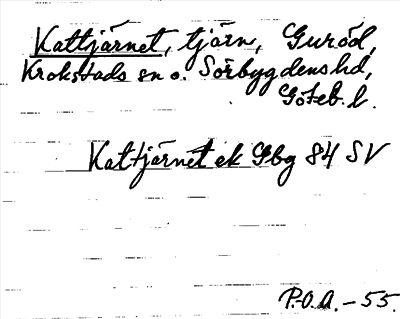 Kattjärnet, tjärn, Guröd,
Krokstads sn o. Sörbygdens hd,
Göteb. l.
Kattjärnet ek Gbg 84 SV
P.O.A. – 55.